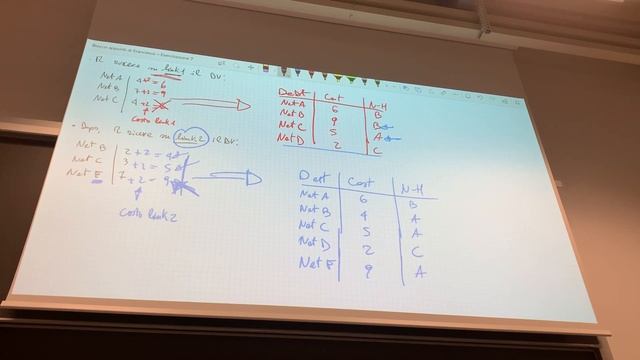 - R riceve su link1 il DV:
Net A | 4+2 = 6
Net B | 7+2 = 9
Net C | 4+2
costo link1
Dest | Cost | N-H
Net A | 6 | B
Net B | 9 | B
Net C | 5 | A
Net D | 2 | C
- Dopo, R riceve su link2 il DV:
Net B | 2+2 = 4
Net C | 3+2 = 5
Net E | 7+2 = 9
costo link2
Dest | Cost | N-H
Net A | 6 | B
Net B | 4 | A
Net C | 5 | A
Net D | 2 | C
Net F | 9 | A